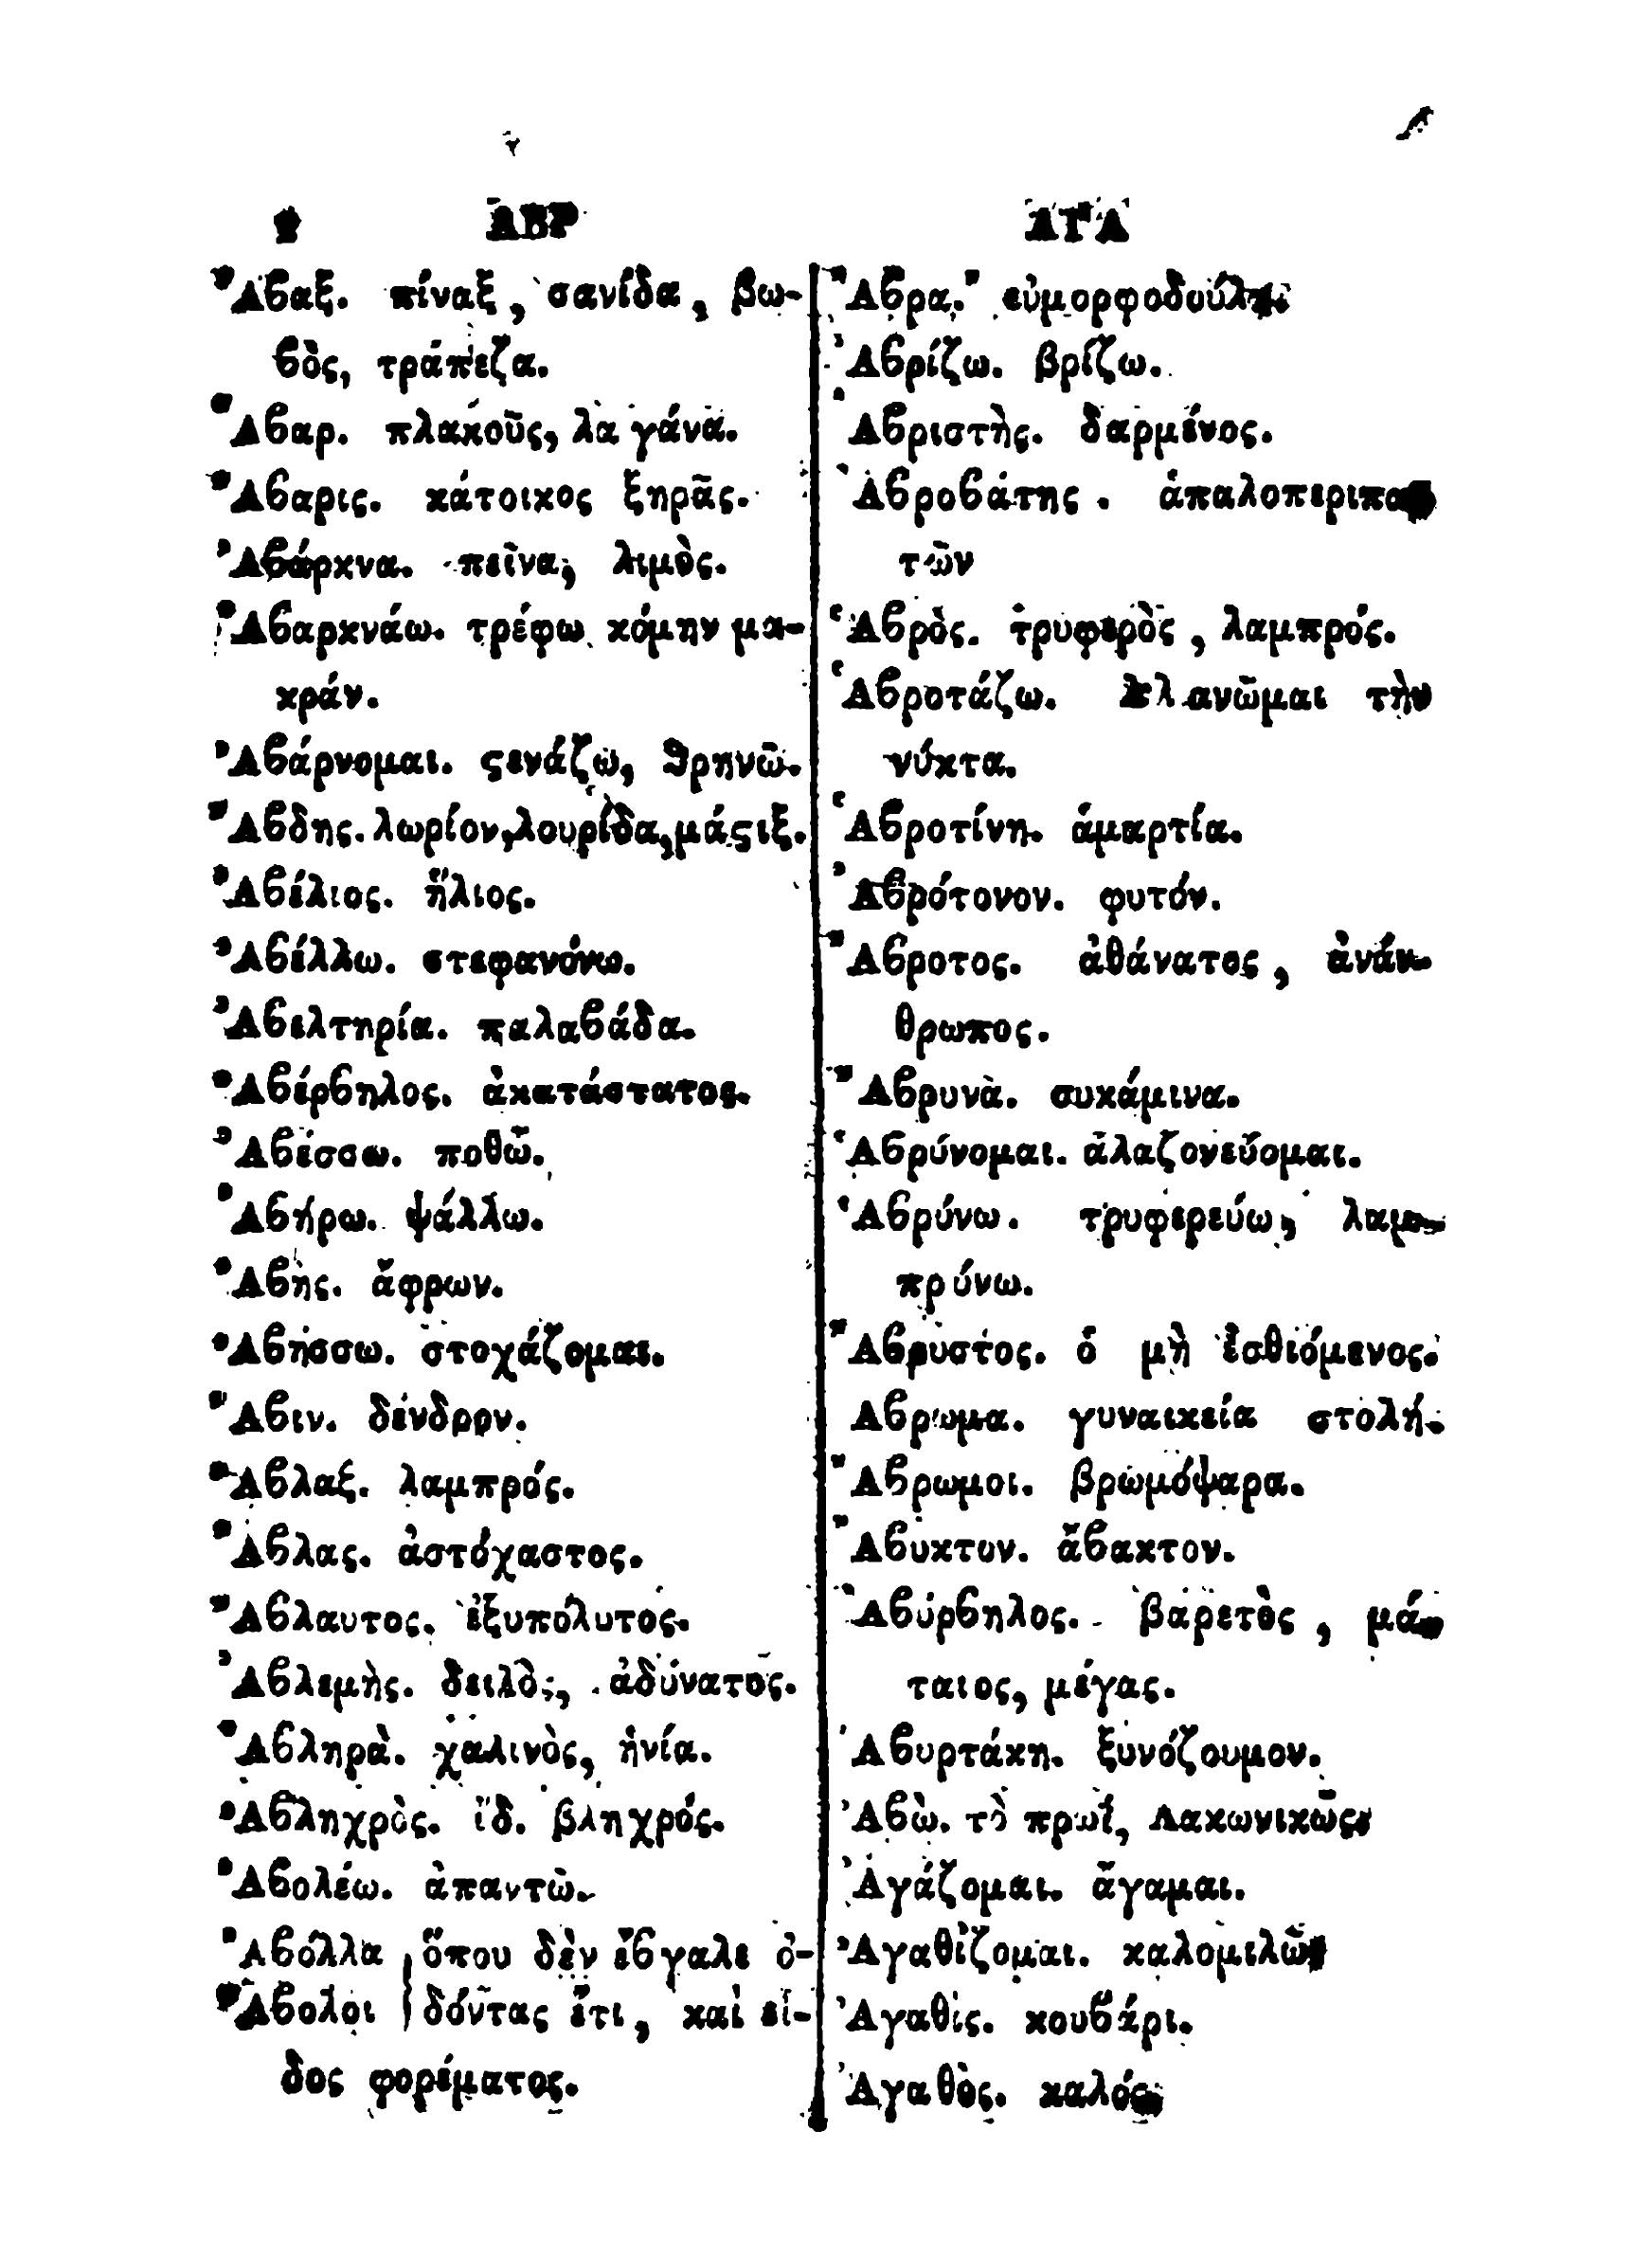 2 ΑΒΡ
Ἄβαξ. πίναξ, σανίδα, βω-
βὸς, τράπεζα.
Ἄβαρ. πλακοῦς, λαγάνα.
Ἄβαρις. κάτοικος ξηρᾶς.
Ἀβάρκνα. πεῖνα, λιμὸς.
Ἀβαρκνάω. τρέφω κόμην μα-
κράν.
Ἀβάρνομαι. ϛενάζω, θρηνῶ.
Ἄβδης. λωρίον, λουρίδα, μάϛιξ.
Ἀβέλιος. ἥλιος.
Ἀβέλλω. στεφανόνω.
Ἀβελτηρία. παλαβάδα.
Ἀβέρβηλος. ἀκατάστατος.
Ἀβέσσω. ποθῶ.
Ἀβήρω. ψάλλω.
Ἀβὴς. ἄφρων.
Ἀβήσσω. στοχάζομαι.
Ἄβιν. δένδρον.
Ἄβλαξ. λαμπρός.
Ἄβλας. ἀστόχαστος.
Ἄβλαυτος. ἐξυπόλυτος.
Ἀβλεμὴς. δειλὸς, ἀδύνατος.
Ἀβληρὰ. χαλινὸς, ἡνία.
Ἀβληχρὸς. ἰδ. βληχρός.
Ἀβολέω. ἀπαντῶ.
Ἀβόλλα } ὅπου δὲν ἔβγαλε ὀ-
Ἄβολοι } δόντας ἔτι, καὶ εἶ-
δος φορέματος.
ΑΓΑ
Ἄβρα. εὐμορφοδούλη.
Ἀβρίζω. βρίζω.
Ἀβριστὴς. δαρμένος.
Ἁβροβάτης. ἁπαλοπεριπα-
τῶν
Ἁβρὸς. τρυφερὸς, λαμπρός.
Ἁβροτάζω. πλανῶμαι τὴν
νύκτα.
Ἁβροτίνη. ἁμαρτία.
Ἀβρότονον. φυτόν.
Ἄβροτος. ἀθάνατος, ἀνάν-
θρωπος.
Ἄβρυνὰ. συκάμινα.
Ἁβρύνομαι. ἀλαζονεύομαι.
Ἁβρύνω. τρυφερεύω, λαμ-
πρύνω.
Ἄβρυστος. ὁ μὴ ἐσθιόμενος.
Αβρωμα. γυναικεία στολή.
Ἄβρωμοι. βρωμόψαρα.
Ἄβυκτον. ἄβακτον.
Ἀβύρβηλος. βαρετὸς, μά-
ταιος, μέγας.
Ἀβυρτάκη. ξυνόζουμον.
Ἀβὼ. τὸ πρωΐ, Λακωνικῶς.
Ἀγάζομαι. ἄγαμαι.
Ἀγαθίζομαι. καλομιλῶ.
Ἀγαθὶς. κουβάρι.
Ἀγαθὸς. καλός.